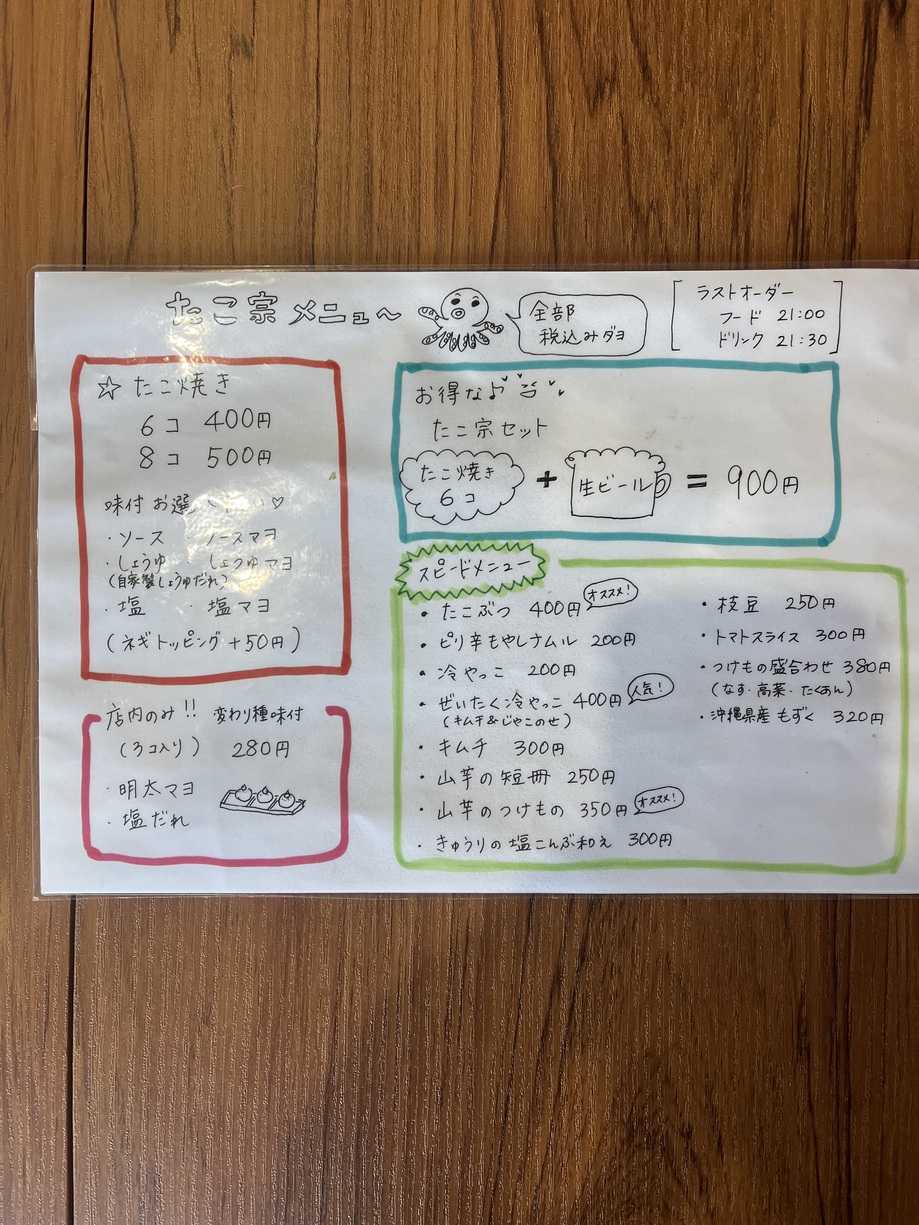 たこ宗 メニュ〜
全部
税込みダヨ
ラストオーダー
フード 21:00
ドリンク 21:30
☆ たこ焼き
6コ 400円
8コ 500円
味付 お選
・ソース ・ソースマヨ
・しょうゆ ・しょうゆマヨ
(自家製しょうゆだれ)
・塩 ・塩マヨ
(ネギトッピング +50円)
店内のみ!! 変わり種味付
(3コ入り) 280円
・明太マヨ
・塩だれ
お得な♪
たこ宗セット
たこ焼き
6コ
+ 生ビール = 900円
スピードメニュー
・たこぶつ 400円 オススメ!
・ピリ辛もやしナムル 200円
・冷やっこ 200円
・ぜいたく冷やっこ 400円 人気!
(キムチ&じゃこのせ)
・キムチ 300円
・山芋の短冊 250円
・山芋のつけもの 350円 オススメ!
・きゅうりの塩こんぶ和え 300円
・枝豆 250円
・トマトスライス 300円
・つけもの盛合わせ 380円
(なす・高菜・たくあん)
・沖縄県産もずく 320円